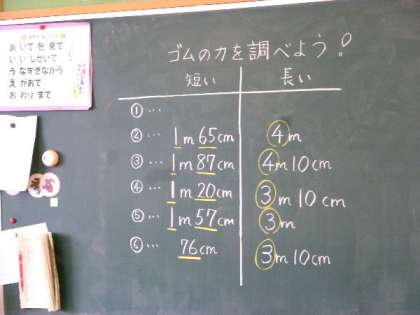 あいてを見て
いいしせいで
うなずきながら
えがおで
おわりまで
ゴムの力を調べよう!
短い 長い
①…
②… 1m65cm 4m
③… 1m87cm 4m10cm
④… 1m20cm 3m10cm
⑤… 1m57cm 3m
⑥… 76cm 3m10cm